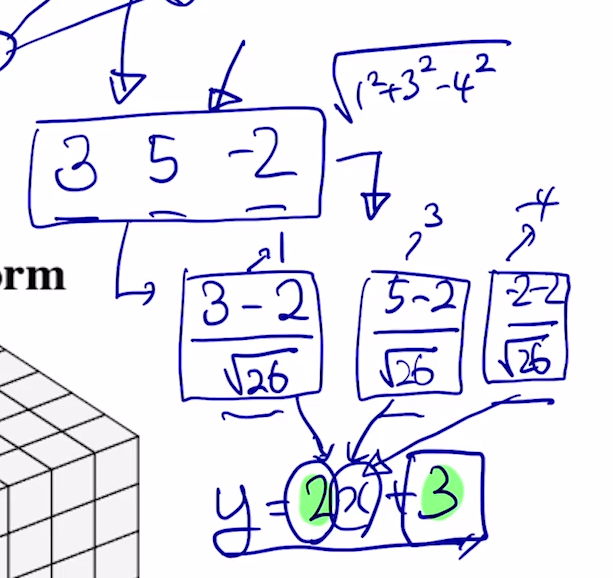 √1²+3²-4²
3 5 -2
1 3 -4
orm
3-2/√26 5-2/√26 -2-2/√26
y = 2x + 3